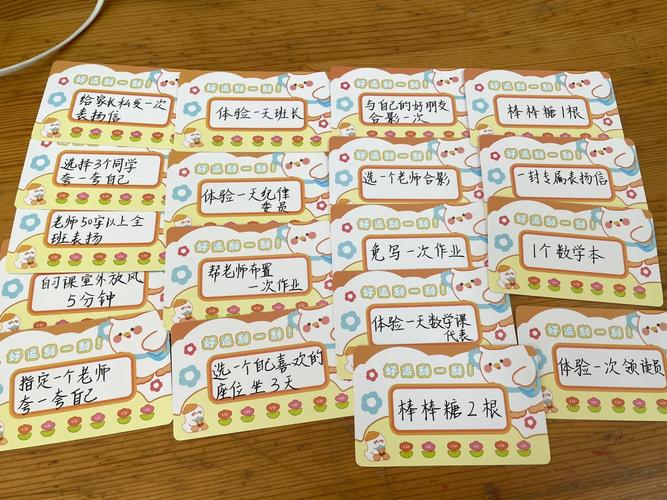 好运刮一刮!
给家长私发一次
表扬信
选择3个同学
夸一夸自己
老师50字以上全
班表扬
自习课室外放风
5分钟
好运刮一刮!
指定一个老师
夸一夸自己
好运刮一刮!
体验一天班长
好运刮一刮!
体验一天纪律
委员
好运刮一刮!
帮老师布置
一次作业
好运刮一刮!
选一个自己喜欢的
座位坐3天
好运刮一刮!
与自己的好朋友
合影一次
选一个老师合影
免写一次作业
体验一天数学课
代表
好运刮一刮!
棒棒糖2根
好运刮一刮!
棒棒糖1根
一封专属表扬信
好运刮一刮!
1个数学本
好运刮一刮!
体验一次领读员